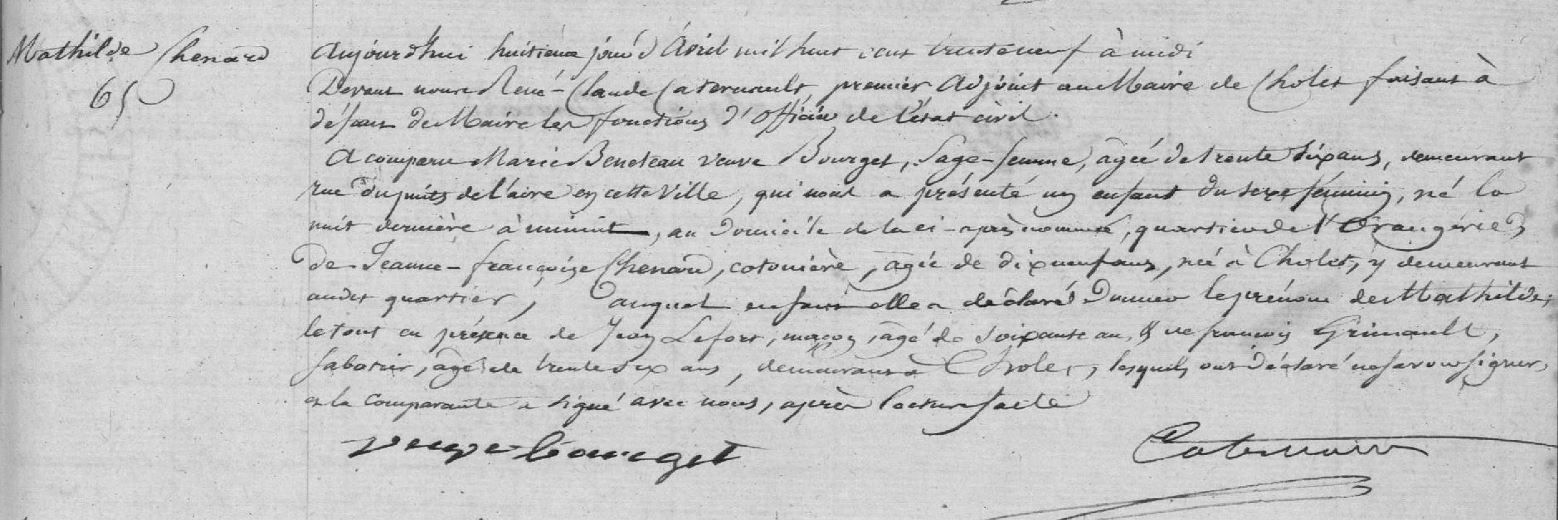 Mathilde Chenard
65
Aujourd'hui huitieme jour d'Avril mil huit cent trente neuf à midi
Devant nous René-Claude Caternault premier Adjoint au Maire de Cholet faisant à
défaut de Maire les fonctions d'Officier de l'état civil.
A comparu Marie Beneteau veuve Bourget, Sage-femme, âgée de trente six ans, demeurant
rue du puits de l'aire en cette Ville, qui nous a présenté un enfant du sexe féminin, né la
nuit dernière à minuit, au domicile de la ci-après nommée, quartier de l'Orangérie,
de Jeanne-françoise Chenard, cotonière, âgée de dix neuf ans, née à Cholet, y demeurant
audit quartier, auquel enfant elle a déclaré donner le prénom de Mathilde,
le tout en présence de Jean Lefort, maçon, âgé de soixante ans, & de françois Grimault,
sabotier, âgé de trente six ans, demeurant à Cholet, lesquels ont déclaré ne savoir signer,
et la comparante a signé avec nous, après lecture faite
veuve bourget